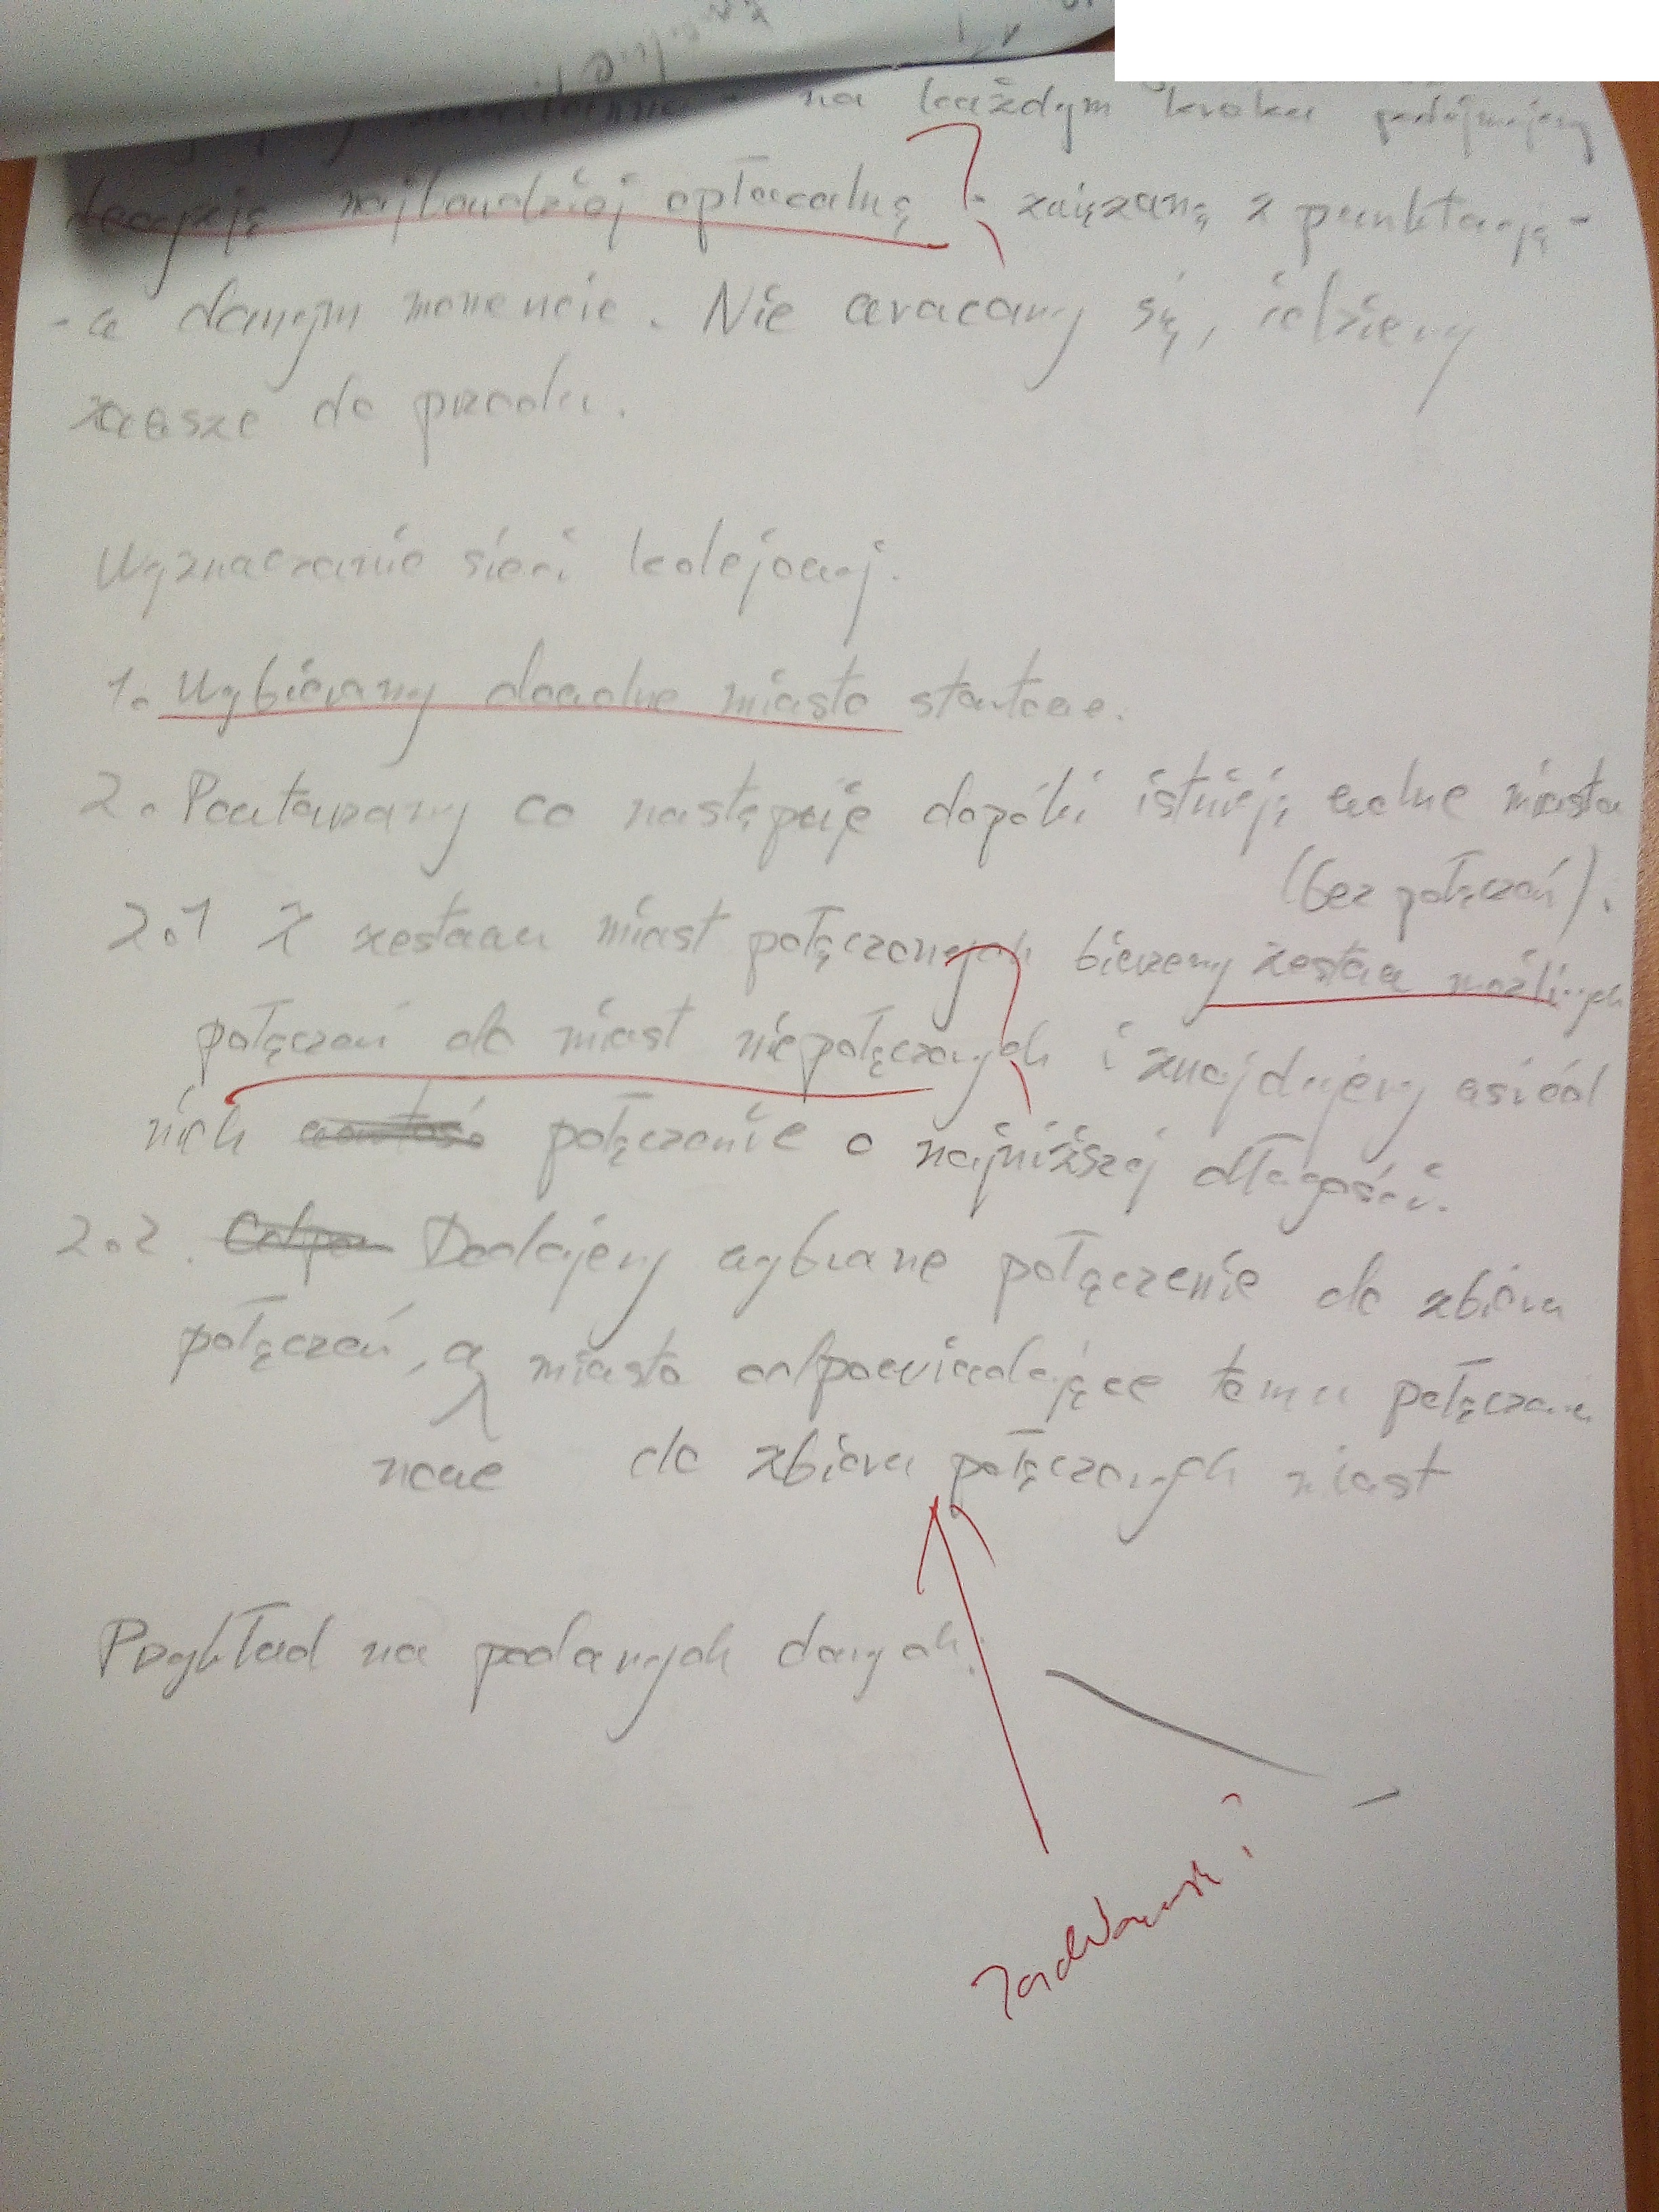 na każdym kroku podejmujemy
decyzję najbardziej opłacalną - związaną z punktacją -
- w danym momencie. Nie wracamy się, idziemy
zawsze do przodu.
Wyznaczanie sieci kolejowej.
1. Wybieramy dowolne miasto startowe.
2. Powtarzamy co następuje dopóki istnieją wolne miasta
(bez połączeń).
2.1 Z zestawu miast połączonych bierzemy zestaw możliwych
połączeń do miast niepołączonych i znajdujemy wśród
nich połączenie o najniższej długości.
2.2. Dodajemy wybrane połączenie do zbioru
połączeń, a miasto odpowiadające temu połączeniu
nowe do zbioru połączonych miast
Przykład na podanych danych: